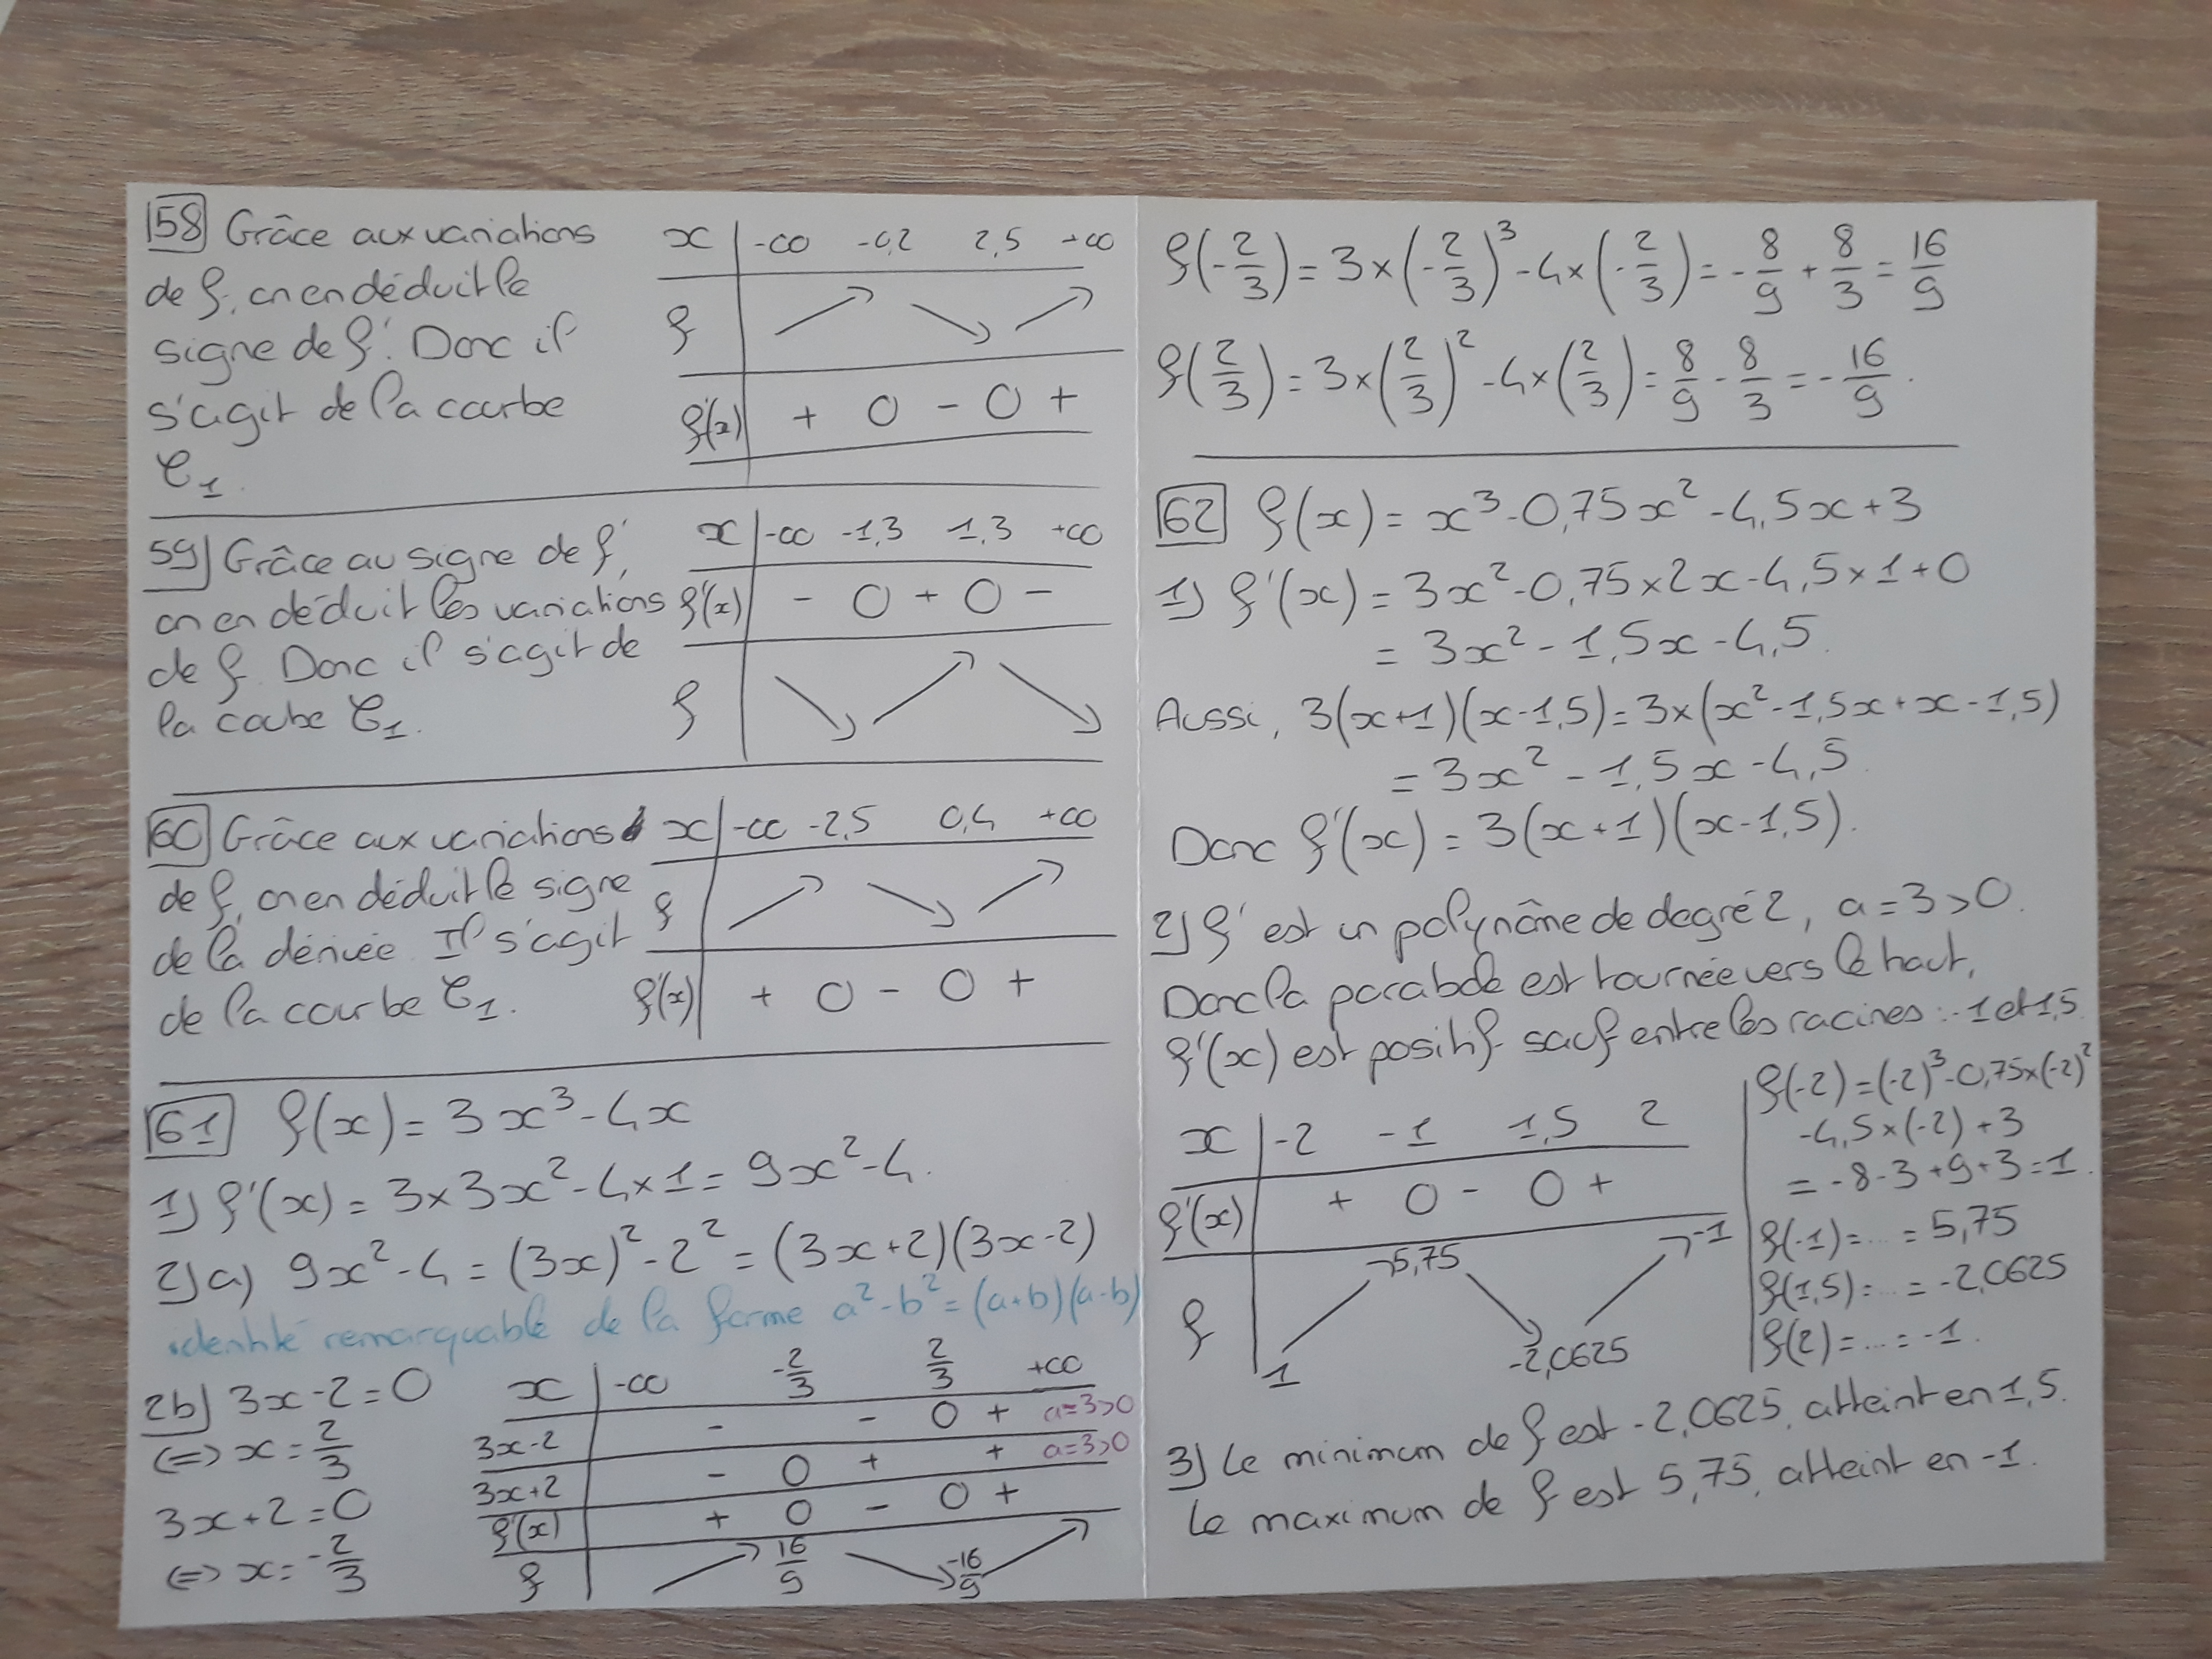 58 Grâce aux variations
de f, on en déduit le
signe de f'. Donc il
s'agit de la courbe
C₁.
x | -∞ -0,2 2,5 +∞
f | ↗ ↘ ↗
f'(x) | + 0 - 0 +
59 Grâce au signe de f',
on en déduit les variations
de f. Donc il s'agit de
la coube C₁.
x | -∞ -1,3 1,3 +∞
f'(x) | - 0 + 0 -
f | ↘ ↗ ↘
60 Grâce aux variations
de f, on en déduit le signe
de la dérivée. Il s'agit
de la courbe C₁.
x | -∞ -2,5 0,4 +∞
f | ↗ ↘ ↗
f'(x) | + 0 - 0 +
61 f(x) = 3x³ - 4x
1) f'(x) = 3×3x² - 4×1 = 9x² - 4.
2) a) 9x² - 4 = (3x)² - 2² = (3x+2)(3x-2)
identité remarquable de la forme a² - b² = (a+b)(a-b)
2b) 3x - 2 = 0
(=) x = 2/3
3x + 2 = 0
(=) x = -2/3
x | -∞ -2/3 2/3 +∞
3x-2 | - - 0 + a=3>0
3x+2 | - 0 + + a=3>0
f'(x) | + 0 - 0 +
f | ↗ 16/9 ↘ -16/9 ↗
f(-2/3) = 3×(-2/3)³ - 4×(-2/3) = -8/9 + 8/3 = 16/9
f(2/3) = 3×(2/3)² - 4×(2/3) = 8/9 - 8/3 = -16/9.
62 f(x) = x³ - 0,75x² - 4,5x + 3
1) f'(x) = 3x² - 0,75×2x - 4,5×1 + 0
= 3x² - 1,5x - 4,5.
Aussi, 3(x+1)(x-1,5) = 3×(x² - 1,5x + x - 1,5)
= 3x² - 1,5x - 4,5.
Donc f'(x) = 3(x+1)(x-1,5).
2) f' est un polynôme de degré 2, a = 3 > 0.
Donc la parabole est tournée vers le haut,
f'(x) est positif sauf entre les racines : -1 et 1,5.
x | -2 -1 1,5 2
f'(x) | + 0 - 0 +
f | 1 ↗ 5,75 ↘ -2,0625 ↗ -1
f(-2) = (-2)³ - 0,75×(-2)²
-4,5×(-2) + 3
= -8 - 3 + 9 + 3 = 1.
f(-1) = ... = 5,75
f(1,5) = ... = -2,0625
f(2) = ... = -1.
3) Le minimum de f est -2,0625, atteint en 1,5.
Le maximum de f est 5,75, atteint en -1.